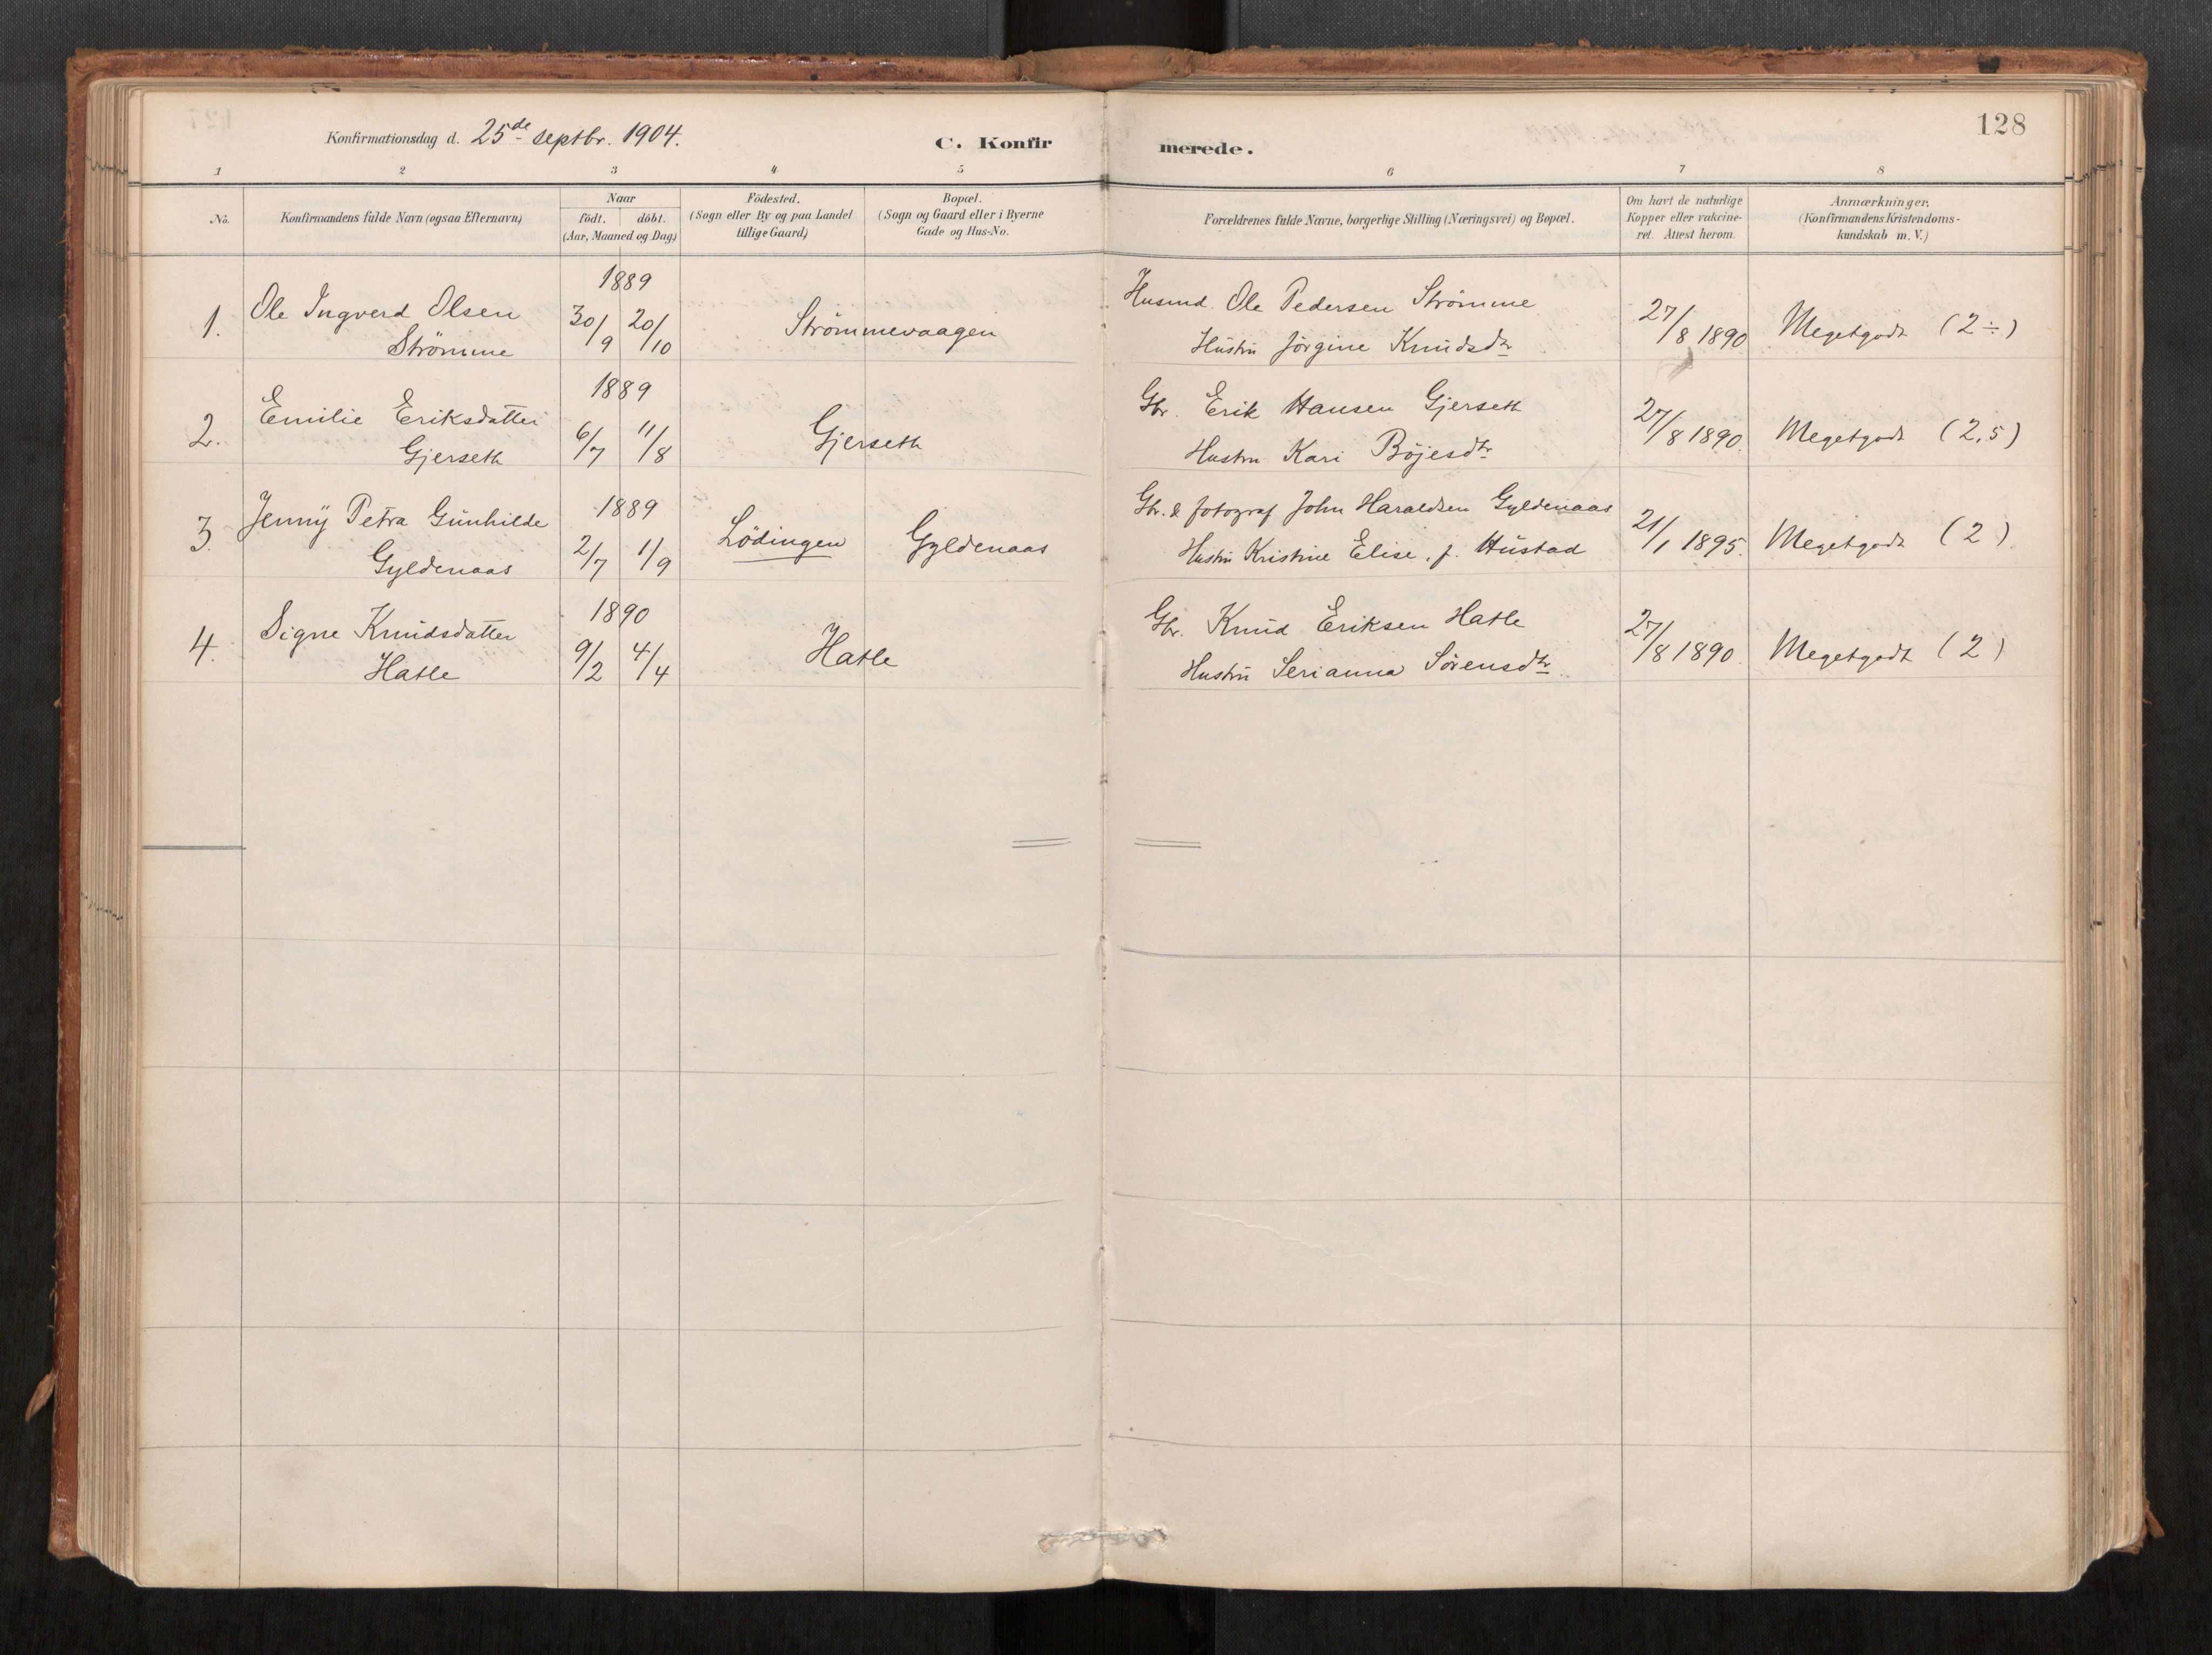 128
Konfirmationsdag d. 25de septbr. 1904.
C. Konfir
merede.
1 2 3 4 5 6 7 8
No.
Konfirmandens fulde Navn (ogsaa Efternavn)
Naar
födt. döbt.
(Aar, Maaned og Dag)
Födested.
(Sogn eller By og paa Landet
tillige Gaard)
Bopæl.
(Sogn og Gaard eller i Byerne
Gade og Hus-No.
Forældrenes fulde Navne, borgerlige Stilling (Næringsvei) og Bopæl.
Om havt de naturlige
Kopper eller vakcine-
ret. Attest herom.
Anmærkninger.
(Konfirmandens Kristendoms-
kundskab m. V.)
1889
1. Ole Ingverd Olsen 30/9 20/10 Strömmevaagen Husmd. Ole Pedersen Strömme 27/8 1890 Megetgodt (2÷)
Strömme Hustru Jörgine Knudsdtr
1889
2. Emilie Eriksdatter 6/7 11/8 Gjerseth Gbr. Erik Hansen Gjerseth 27/8 1890. Megetgodt (2,5)
Gjerseth Hustru Kari Böjesdtr
1889
3. Jenny Petra Gunhilde 2/7 1/9 Lödingen Gyldenaas Gbr. & fotograf John Haraldsen Gyldenaas 21/1 1895. Megetgodt (2)
Gyldenaas Hustru Kristine Elise, f. Hustad
1890
4. Signe Knudsdatter 9/2 4/4 Hatle Gbr. Knud Eriksen Hatle 27/8 1890. Megetgodt (2)
Hatle Hustru Serianna Sörensdtr